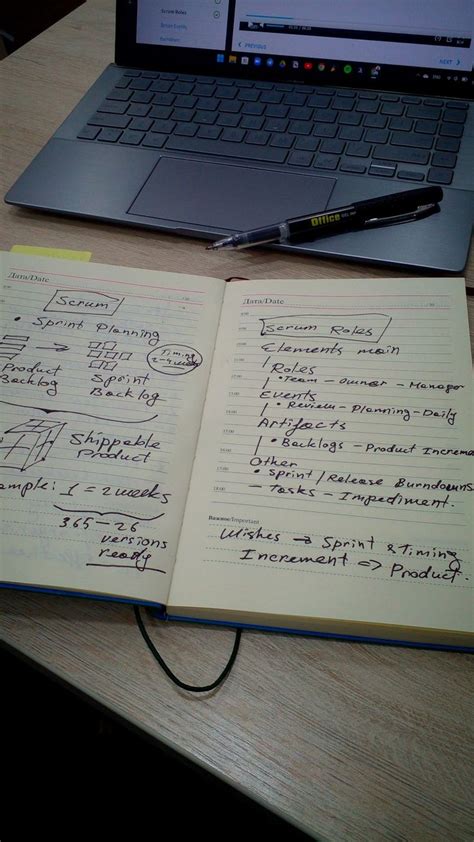 Scrum Roles
PREVIOUS
NEXT
Office
Дата/Date
Scrum
• Sprint Planning
Timing
2-4 weeks
Product
Backlog
Sprint
Backlog
Shippable
Product
ample: 1 = 2 weeks
365 – 26
versions
ready
Дата/Date
Scrum Roles
Elements main
Roles
• Team – Owner – Manager
Events
• Review – Planning – Daily
Artifacts
• Backlogs – Product Increme
Other
• Sprint / Release Burndowns
– Tasks – Impediment.
Важно/Important
Wishes → Sprint & Timing
Increment => Product